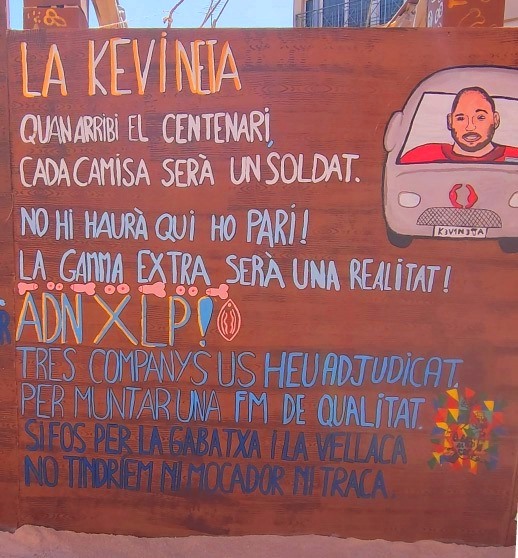 LA KEVINETA
QUAN ARRIBI EL CENTENARI,
CADA CAMISA SERÀ UN SOLDAT.
NO HI HAURÀ QUI HO PARI!
LA GAMMA EXTRA SERÀ UNA REALITAT!
KEVINETA
ADN XLP!
TRES COMPANYS US HEU ADJUDICAT,
PER MUNTAR UNA FM DE QUALITAT.
SI FOS PER LA GABATXA I LA VELLACA
NO TINDRÍEM NI MOCADOR NI TRACA.